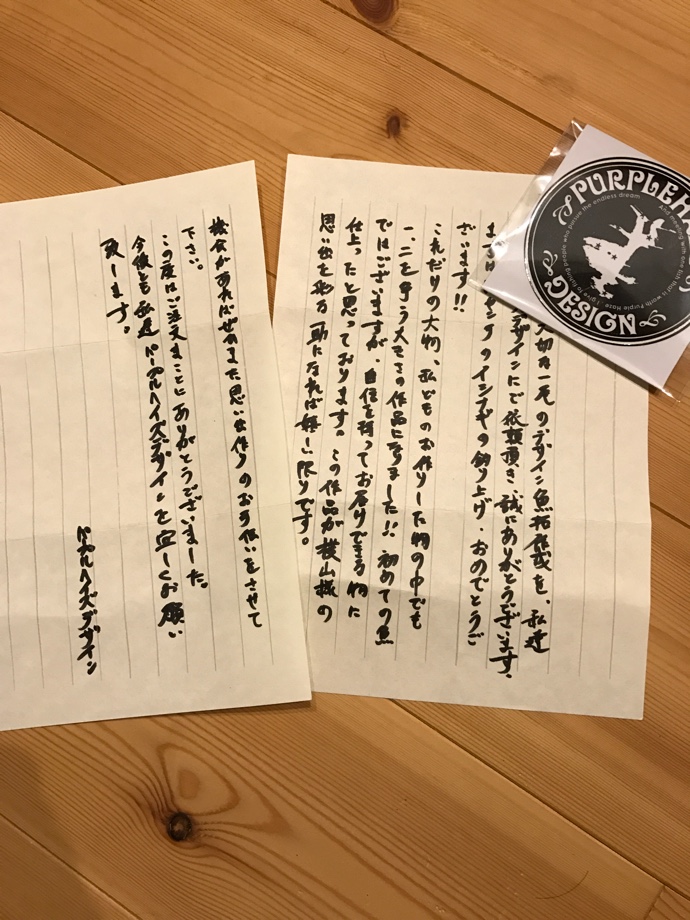 大切な一尾のデザイン魚拓作成を、私達
デザインにご依頼頂き誠にありがとうございます。
まずは
のイシナギの釣り上げ、おめでとうご
ざいます!!
これだけの大物、私どものお作りした物の中でも
一、二を争う大きさの作品になりました!!初めての魚
ではございますが、自信を持ってお届けできる物に
仕上ったと思っております。この作品が横山様の
思い出を彩る一助になれば嬉しい限りです。
機会があればぜひまた思い出作りのお手伝いをさせて
下さい。
この度はご注文まことにありがとうございました。
今後も私達パープルヘイズデザインを宜しくお願い
致します。
パープルヘイズデザイン
PURPLEHA
DESIGN
people who pursue the endless dream
And meeting with one fish that is worth Purple Haze